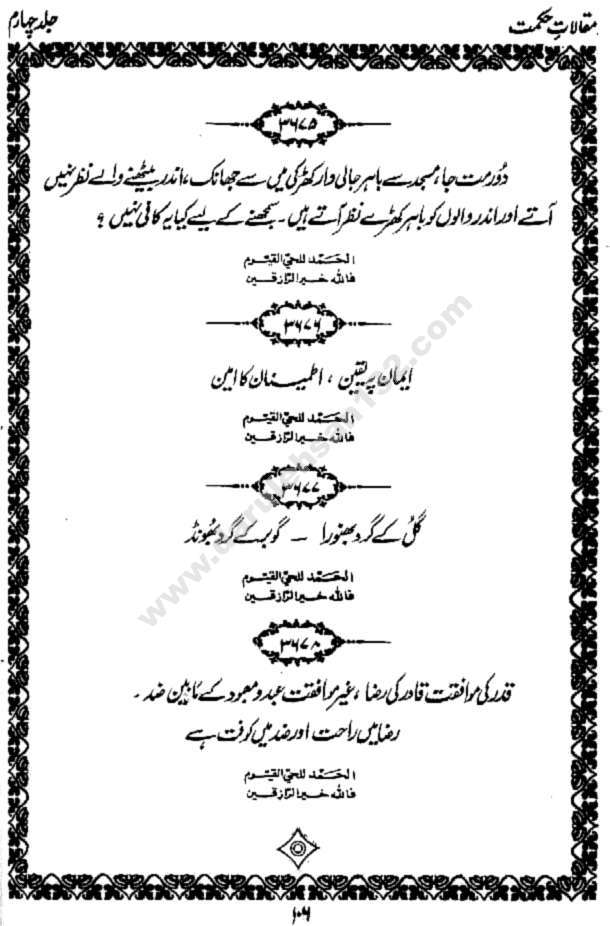 مقالاتِ حکمت
جلد چہارم
۳۶۷۵
دُور مت جا، مسجد سے باہر جالی دار کھڑکی میں سے جھانک، اندر بیٹھنے والے نظر نہیں
آتے اور اندر والوں کو باہر کھڑے نظر آتے ہیں۔ سمجھنے کے لیے کیا یہ کافی نہیں ؟
الحَمد للحیّ القیّوم
فاللہ خیر الرّازقین
۳۶۷۶
ایمان پر یقین ، اطمینان کا امین
الحَمد للحیّ القیّوم
فاللہ خیر الرّازقین
۳۶۷۷
گُل کے گرد بھنورا — گوبر کے گرد بھُونڈ
الحَمد للحیّ القیّوم
فاللہ خیر الرّازقین
۳۶۷۸
قدر کی موافقت قادر کی رضا ، غیر موافقت عبد و معبود کے مابین ضد ۔
رضا میں راحت اور ضد میں کوفت ہے
الحَمد للحیّ القیّوم
فاللہ خیر الرّازقین
۱۰۶
www.darulehsan132.com